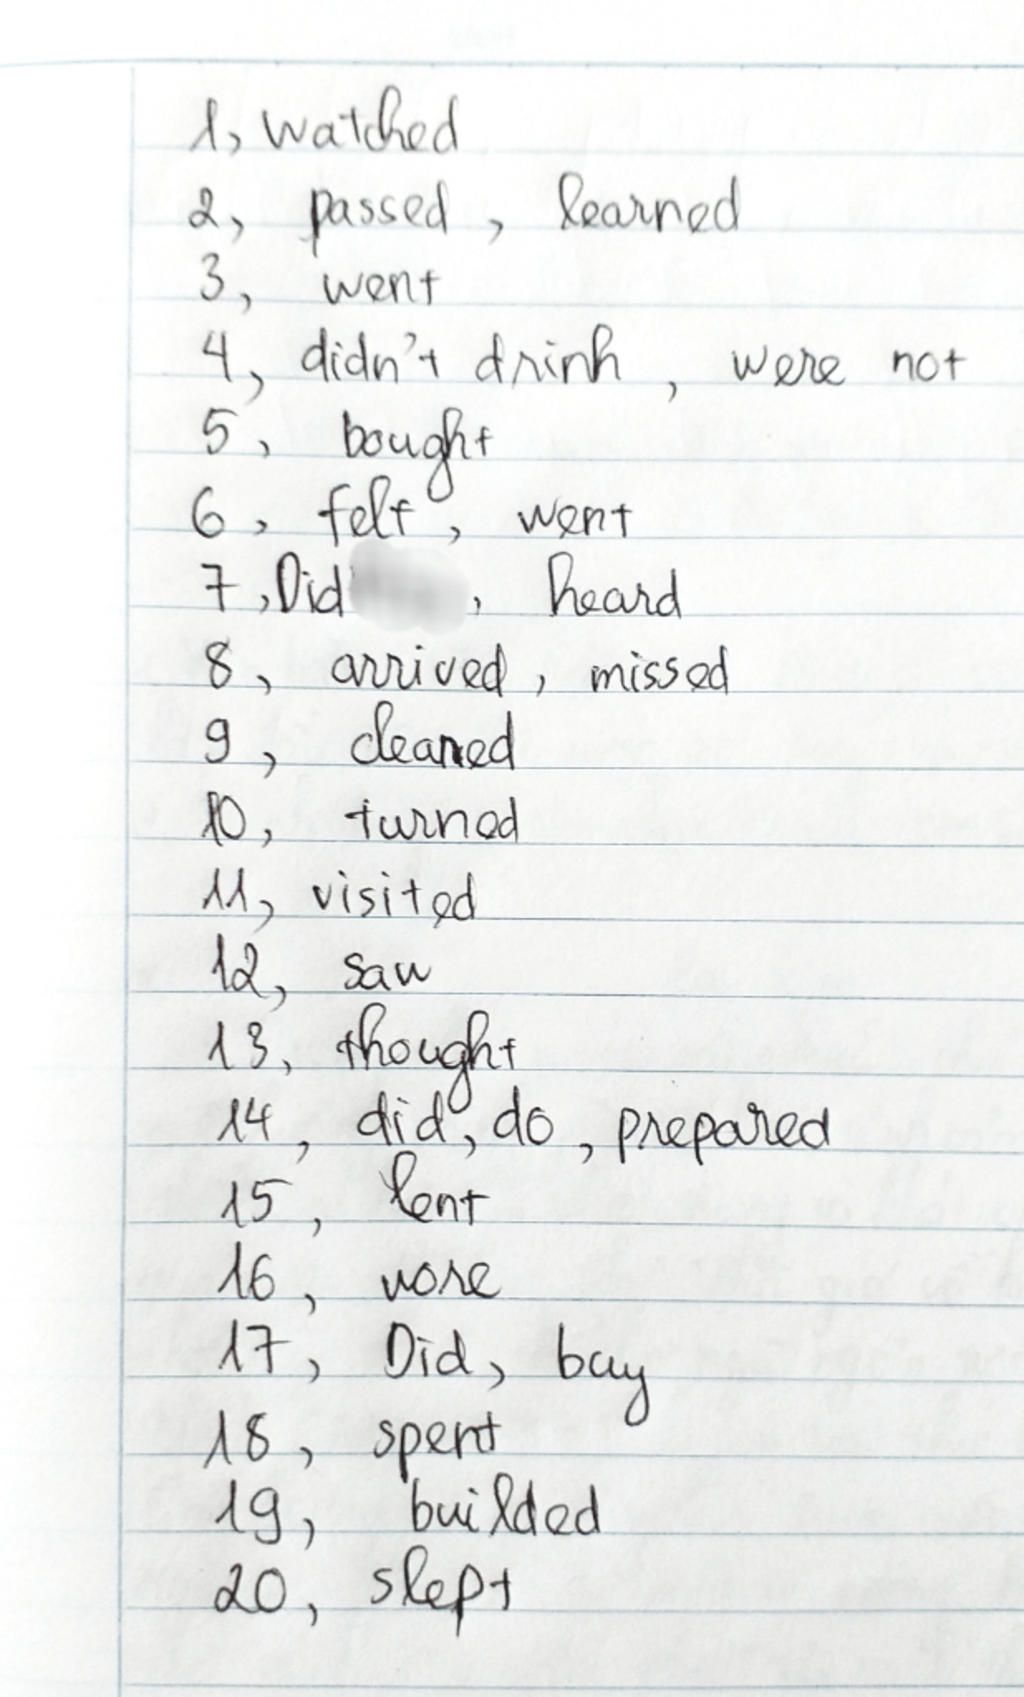 1, watched
2, passed, learned
3, went
4, didn't drink, were not
5, bought
6, felt, went
7, Did , heard
8, arrived, missed
9, cleaned
10, turned
11, visited
12, saw
13, thought
14, did, do, prepared
15, lent
16, wore
17, Did, buy
18, spent
19, builded
20, slept